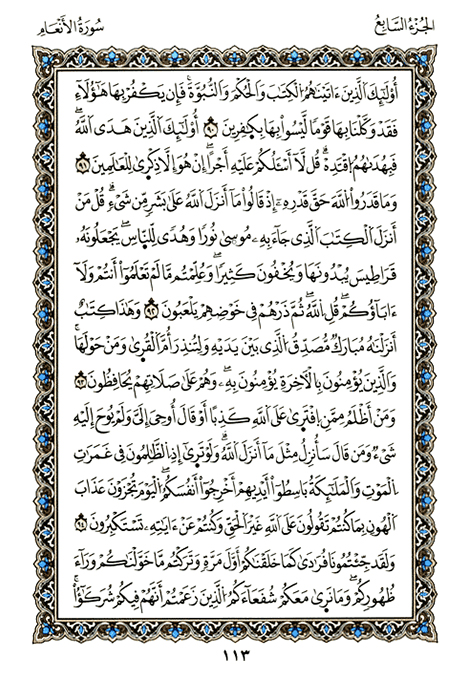 الجُزْءُ السَّابِعُ
سُورَةُ الأَنْعَامِ
أُوْلَٰٓئِكَ الَّذِينَ ءَاتَيْنَٰهُمُ الْكِتَٰبَ وَالْحُكْمَ وَالنُّبُوَّةَ فَإِن يَكْفُرْ بِهَا هَٰٓؤُلَآءِ
فَقَدْ وَكَّلْنَا بِهَا قَوْمًا لَّيْسُوا۟ بِهَا بِكَٰفِرِينَ ٩٠ أُوْلَٰٓئِكَ الَّذِينَ هَدَى اللَّهُ
فَبِهُدَىٰهُمُ اقْتَدِهْ قُل لَّآ أَسْـَٔلُكُمْ عَلَيْهِ أَجْرًا إِنْ هُوَ إِلَّا ذِكْرَىٰ لِلْعَٰلَمِينَ ٩١
وَمَا قَدَرُوا۟ اللَّهَ حَقَّ قَدْرِهِۦٓ إِذْ قَالُوا۟ مَآ أَنزَلَ اللَّهُ عَلَىٰ بَشَرٍ مِّن شَيْءٍ قُلْ مَنْ
أَنزَلَ الْكِتَٰبَ الَّذِى جَآءَ بِهِۦ مُوسَىٰ نُورًا وَهُدًى لِّلنَّاسِ يَجْعَلُونَهُۥ
قَرَاطِيسَ يُبْدُونَهَا وَيُخْفُونَ كَثِيرًا وَعُلِّمْتُم مَّا لَمْ تَعْلَمُوٓا۟ أَنتُمْ وَلَآ
ءَابَآؤُكُمْ قُلِ اللَّهُ ثُمَّ ذَرْهُمْ فِى خَوْضِهِمْ يَلْعَبُونَ ٩٢ وَهَٰذَا كِتَٰبٌ
أَنزَلْنَٰهُ مُبَارَكٌ مُّصَدِّقُ الَّذِى بَيْنَ يَدَيْهِ وَلِتُنذِرَ أُمَّ الْقُرَىٰ وَمَنْ حَوْلَهَا
وَالَّذِينَ يُؤْمِنُونَ بِالْأٓخِرَةِ يُؤْمِنُونَ بِهِۦ وَهُمْ عَلَىٰ صَلَاتِهِمْ يُحَافِظُونَ ٩٣
وَمَنْ أَظْلَمُ مِمَّنِ افْتَرَىٰ عَلَى اللَّهِ كَذِبًا أَوْ قَالَ أُوحِىَ إِلَىَّ وَلَمْ يُوحَ إِلَيْهِ
شَىْءٌ وَمَن قَالَ سَأُنزِلُ مِثْلَ مَآ أَنزَلَ اللَّهُ وَلَوْ تَرَىٰٓ إِذِ الظَّٰلِمُونَ فِى غَمَرَٰتِ
الْمَوْتِ وَالْمَلَٰٓئِكَةُ بَاسِطُوٓا۟ أَيْدِيهِمْ أَخْرِجُوٓا۟ أَنفُسَكُمُ الْيَوْمَ تُجْزَوْنَ عَذَابَ
الْهُونِ بِمَا كُنتُمْ تَقُولُونَ عَلَى اللَّهِ غَيْرَ الْحَقِّ وَكُنتُمْ عَنْ ءَايَٰتِهِۦ تَسْتَكْبِرُونَ ٩٤
وَلَقَدْ جِئْتُمُونَا فُرَٰدَىٰ كَمَا خَلَقْنَٰكُمْ أَوَّلَ مَرَّةٍ وَتَرَكْتُم مَّا خَوَّلْنَٰكُمْ وَرَآءَ
ظُهُورِكُمْ وَمَا نَرَىٰ مَعَكُمْ شُفَعَآءَكُمُ الَّذِينَ زَعَمْتُمْ أَنَّهُمْ فِيكُمْ شُرَكَٰٓؤُا۟
١١٣